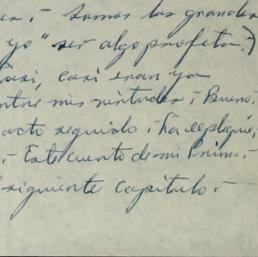 Somos los grandes
yo" ser algo profeta.)
Casi, casi eran ya
entre mis virtudes. Bueno.
acto seguido. La expliqué,
Este cuento de mi Prima.
siguiente capítulo.